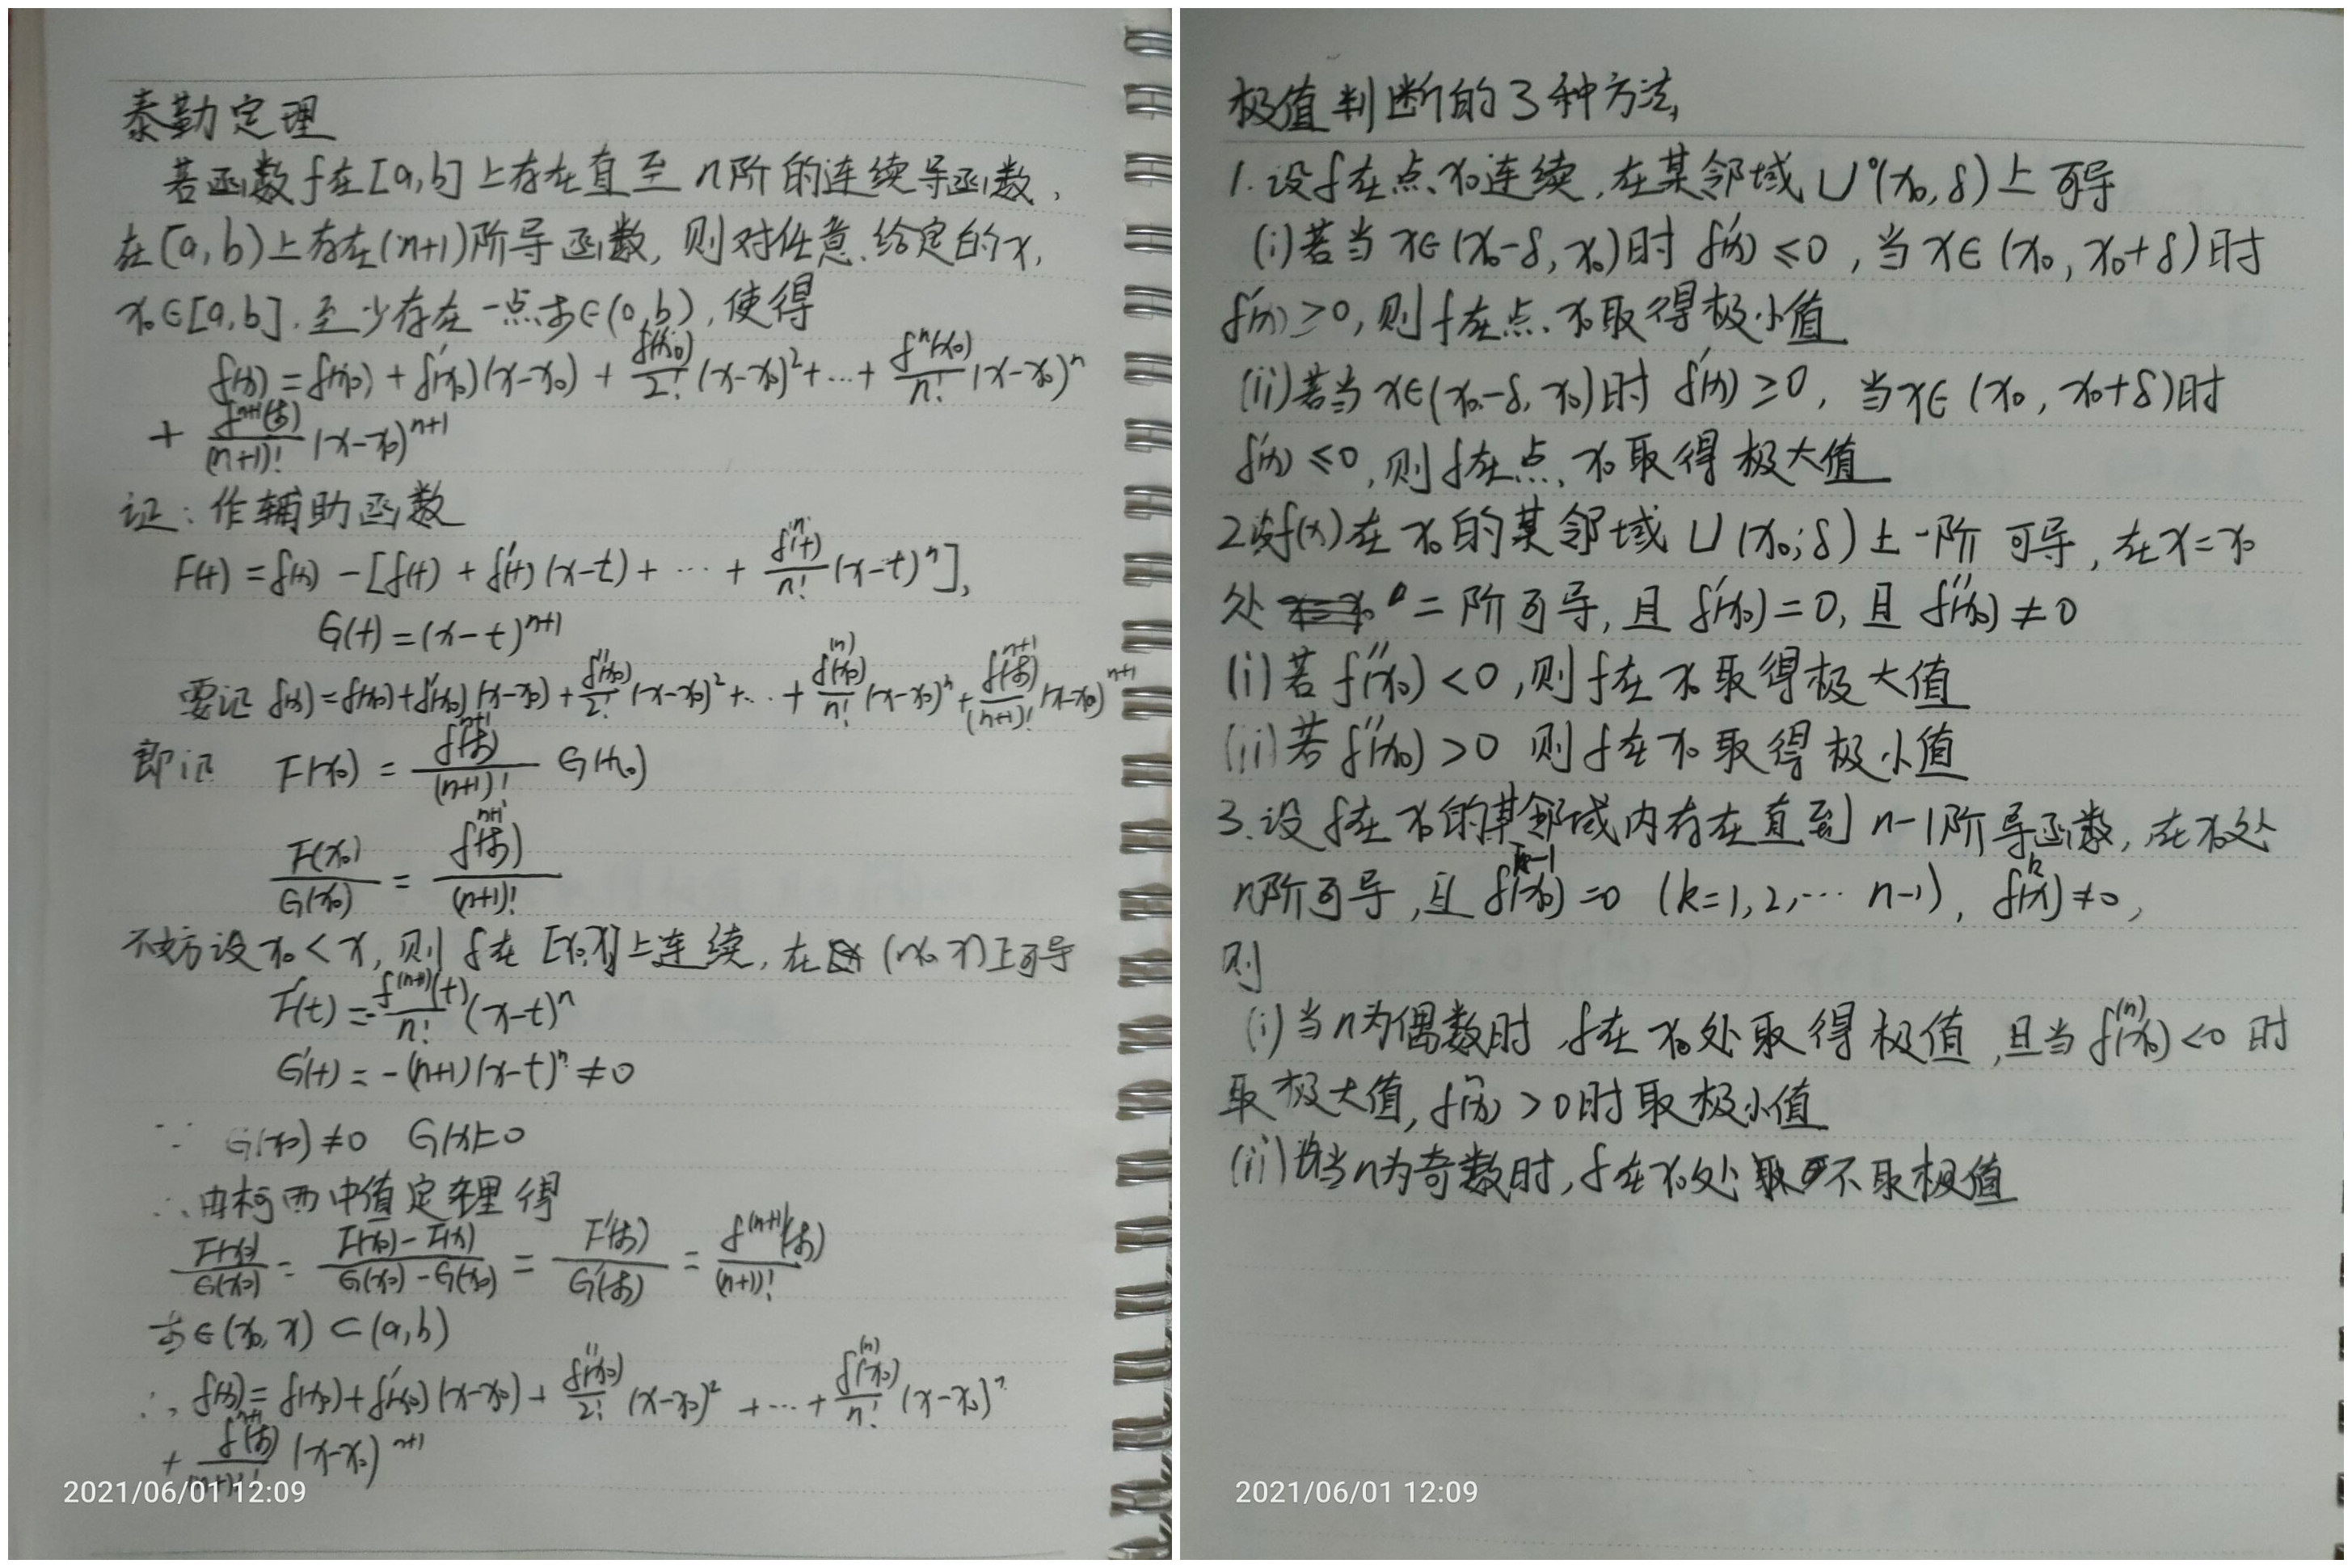 泰勒定理
若函数f在[a,b]上存在直至n阶的连续导函数,
在(a,b)上存在(n+1)阶导函数,则对任意给定的x,
x₀∈[a,b],至少存在一点ξ∈(a,b),使得
f(x)=f(x₀)+f'(x₀)(x-x₀)+f''(x₀)/2!(x-x₀)²+…+fⁿ(x₀)/n!(x-x₀)ⁿ
+fⁿ⁺¹(ξ)/(n+1)!(x-x₀)ⁿ⁺¹
证:作辅助函数
F(t)=f(x)-[f(t)+f'(t)(x-t)+…+f⁽ⁿ⁾(t)/n!(x-t)ⁿ],
G(t)=(x-t)ⁿ⁺¹
要证f(x)=f(x₀)+f'(x₀)(x-x₀)+f''(x₀)/2!(x-x₀)²+…+f⁽ⁿ⁾(x₀)/n!(x-x₀)ⁿ+fⁿ⁺¹(ξ)/(n+1)!(x-x₀)ⁿ⁺¹
即证 F(x₀)=fⁿ⁺¹(ξ)/(n+1)! G(x₀)
F(x₀)/G(x₀)=fⁿ⁺¹(ξ)/(n+1)!
不妨设x₀<x,则f在[x₀,x]上连续,在(x₀,x)上可导
F'(t)=-f⁽ⁿ⁺¹⁾(t)/n!(x-t)ⁿ
G'(t)=-(n+1)(x-t)ⁿ≠0
∵ G(x₀)≠0 G(x)=0
∴由柯西中值定理得
F(x₀)/G(x₀)=F(x₀)-F(x)/G(x₀)-G(x₀)=F'(ξ)/G'(ξ)=f⁽ⁿ⁺¹⁾(ξ)/(n+1)!
ξ∈(x₀,x)⊂(a,b)
∴f(x)=f(x₀)+f'(x₀)(x-x₀)+f''(x₀)/2!(x-x₀)²+…+f⁽ⁿ⁾(x₀)/n!(x-x₀)ⁿ
+fⁿ⁺¹(ξ)/(n+1)!(x-x₀)ⁿ⁺¹
2021/06/01 12:09
极值判断的3种方法,
1.设f在点x₀连续,在某邻域U°(x₀,δ)上可导
(i)若当x∈(x₀-δ,x₀)时f'(x)≤0,当x∈(x₀,x₀+δ)时
f'(x)≥0,则f在点x₀取得极小值
(ii)若当x∈(x₀-δ,x₀)时f'(x)≥0,当x∈(x₀,x₀+δ)时
f'(x)≤0,则f在点x₀取得极大值
2.设f(x)在x₀的某邻域U(x₀;δ)上一阶可导,在x=x₀
处二阶可导,且f'(x₀)=0,且f''(x₀)≠0
(i)若f''(x₀)<0,则f在x₀取得极大值
(ii)若f''(x₀)>0 则f在x₀取得极小值
3.设f在x₀的某邻域内存在直到n-1阶导函数,在x₀处
n阶可导,且fᵏ⁻¹(x₀)=0 (k=1,2,…n-1),fⁿ(x)≠0,
则
(i)当n为偶数时,f在x₀处取得极值,且当f⁽ⁿ⁾(x₀)<0时
取极大值,fⁿ(x₀)>0时取极小值
(ii)当n为奇数时,f在x₀处不取极值
2021/06/01 12:09